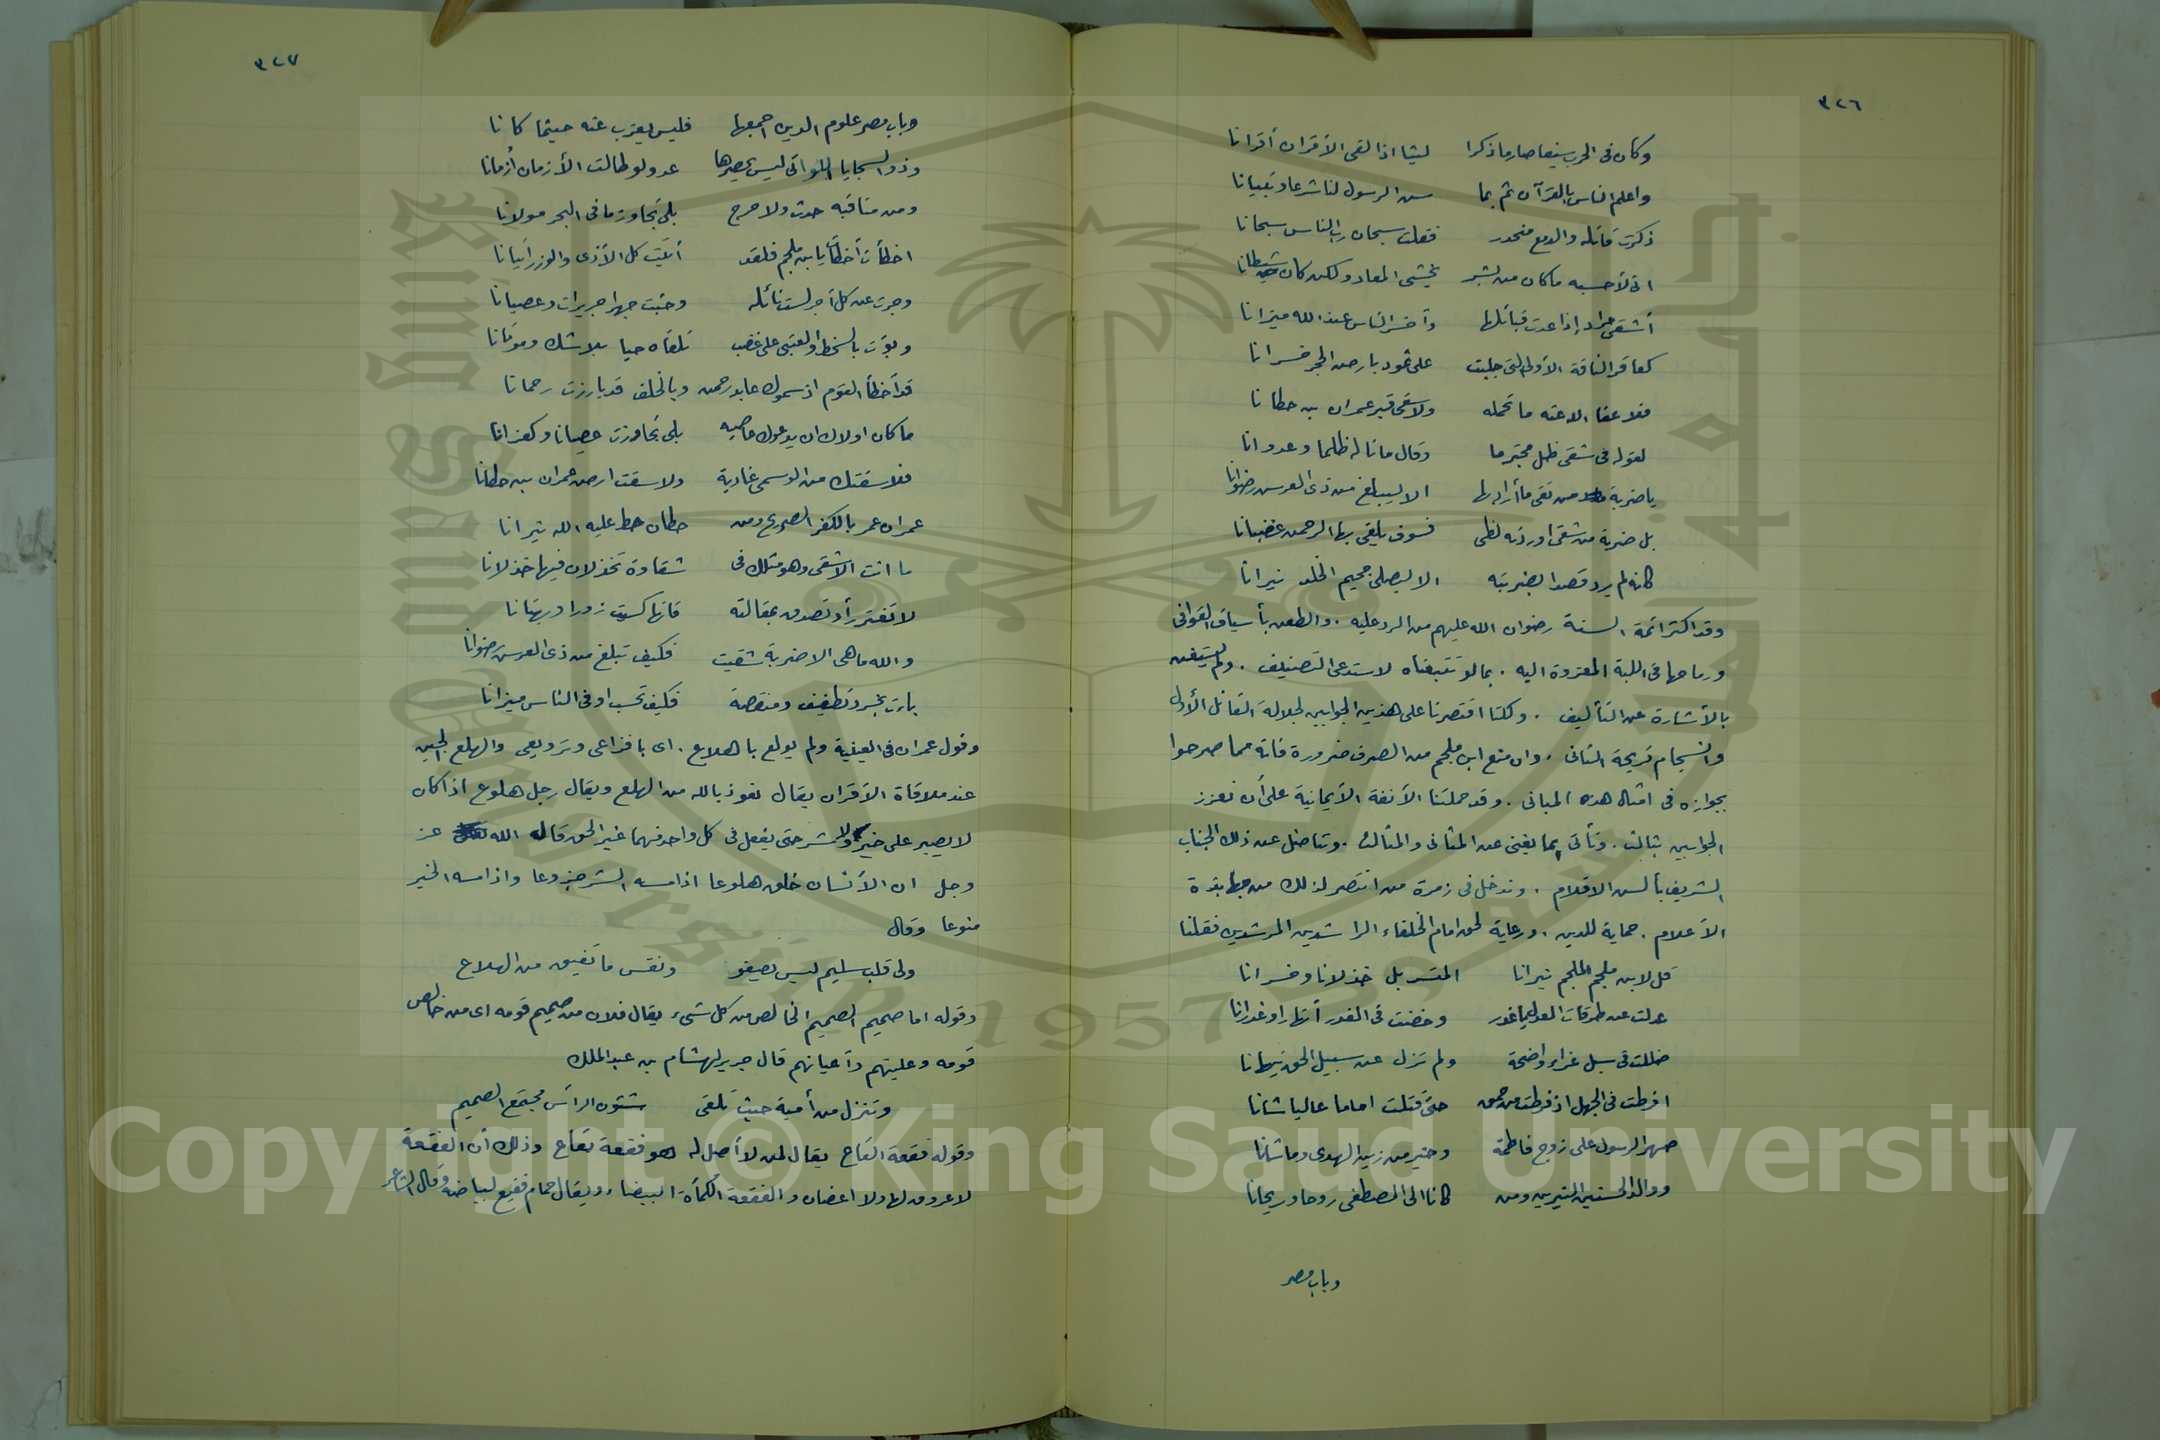 ٣٢٦
وكان فى الحرب سيفا صارما ذكرا ليثا اذا لقى الأقران أقرانا
واعلم الناس بالقرآن ثم بما سن الرسول لنا شرعا وتبيانا
ذكرت قاتله والدمع منحدر فقلت سبحان رب الناس سبحانا
انى لأحسبه ما كان من بشر يخشى المعاد ولكن كان شيطانا
أشقى مراد إذا عدت قبائلها وأخسر الناس عند الله ميزانا
كعاقر الناقة الأولى التى جلبت على ثمود بارض الحجر خسرانا
فلا عفا الله عنه ما تحمله ولا سقى قبر عمران بن حطانا
لقوله فى شقى ظل مجترما وقال ما ناله ظلما وعدوانا
يا ضربة من تقى ما أراد بها الا ليبلغ من ذى العرش رضوانا
بل ضربة من شقى اوردته لظى فسوف يلقى بها الرحمن غضبانا
كانه لم يرد قصدا بضربته الا ليصلى جحيم الخلد نيرانا
وقد اكثر ائمة السنة رضوان الله عليهم من الرد عليه . والطعن بأسياف القوافى
ورماحها فى اللبة المعزوة اليه . بما لو تتبعناه لاستدعى التصنيف . ولم يستغن
بالأشارة عن التأليف . ولكنا اقتصرنا على هذين الجوابين لجلالة القائل الأول
وانسجام قريحة الثانى . وان منع ابن ملجم من الصرف ضرورة فانه مما صرحوا
بجوازه فى امثال هذه المبانى . وقد حملتنا الأنفة الأيمانية على أن نعزز
الجوابين بثالث . ونأتى بما يغنى عن المثانى والمثالث . ونناضل عن ذلك الجناب
الشريف بألسن الاقلام . وندخل فى زمرة من انتصر لذلك من جهابذة
الأعلام . حماية للدين . ورعاية لحق امام الخلفاء الراشدين المرشدين فقلنا
قل لابن ملجم الملجم نيرانا المتسربل خذلانا وخسرانا
عدلت عن طرقات العدل يا غدر وخضت فى الغدر أنهارا وغدرانا
ضللت فى سبل غراء واضحة ولم تزل عن سبيل الحق تيهانا
افرطت فى الجهل اذ فرطت من حمق حتى قتلت اماما عاليا شانا
صهر الرسول على زوج فاطمة وخير من زين الهدى وما شانا
ووالد الحسنين النيرين ومن كانا الى المصطفى روحا وريحانا
وباب مصر
٣٢٧
وباب مصر علوم الدين اجمعها فليس يعزب عنه حيثما كانا
وذو السجايا اللواتى ليس يحصرها عد ولو طالت الأزمان أزمانا
ومن مناقبه حدث ولا حرج بلى تجاوز ما فى البحر مولانا
اخطأت أخطأت يا بن ملجم فلقد أتيت كل الأذى والوزر إتيانا
وجرت عن كل أجر لست نائله وجئت جهرا جريرات وعصيانا
وبؤت بالسخط والعتبى على غضب تلقاه حيا بلا شك وموتانا
قد أخطأ القوم اذ سموك عابد رحمن وبالخلف قد بارزت رحمانا
ما كان اولاك ان يدعوك عاصيه بلى تجاوزت عصيانا وكفرانا
فلا سقتك من الوسمى غادية ولا سقت ارض عمران بن حطانا
عمران عمر بالكفر الصريح ومن حطان حط عليه الله نيرانا
ما انت الا شقى وهو مثلك فى شقاوة تخذلان فيها خذلانا
لا تغترر أو تصدق بمقالته فانها كسيت زورا وبهتانا
والله ما هى الا ضربة شقيت فكيف تبلغ من ذى العرش رضوانا
باءت بخسر وتطفيف ومنقصة فكيف تحسب اوفى الناس ميزانا
وقول عمران فى العينية ولم يولع باهلاع . اى بافزاعى وترويعى والهلع الجبن
عند ملاقاة الأقران يقال نعوذ بالله من الهلع ويقال رجل هلوع اذا كان
لا يصبر على خير ولا شر حتى يفعل فى كل واحد منهما غير الحق قال الله عز
وجل ان الأنسان خلق هلوعا اذا مسه الشر جزوعا واذا مسه الخير
منوعا وقال
ولى قلب سليم ليس يصحو ونفس ما تفيق من الهلاع
وقوله اما صميم الصميم الخالص من كل شىء يقال فلان من صميم قومه اى من خالص
قومه وعليتهم وأعيانهم قال جرير لهشام بن عبد الملك
وتنزل من أمية حيث تلقى شئون الرأس مجتمع الصميم
وقوله فقعة القاع يقال لمن لا أصل له هو فقعة بقاع وذلك أن الفقعة
لا عروق لها ولا اغصان والفقعة الكمأة البيضاء ويقال حمام فقيع لبياضه وقال الشاعر
1957
Copyright © King Saud University